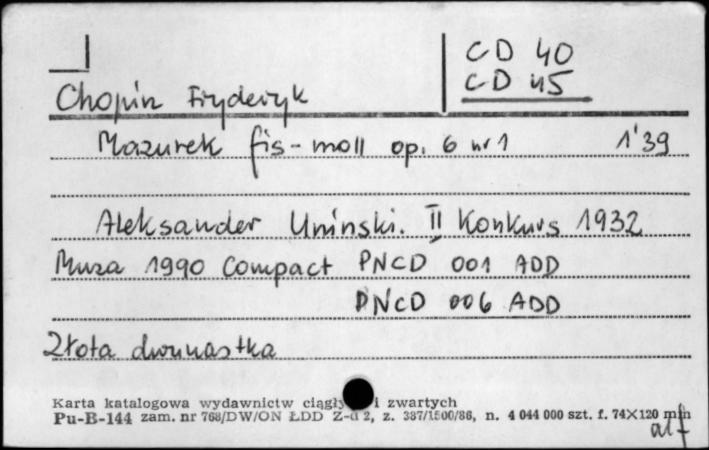 CD 40
CD 45
Chopin Fryderyk
Mazurek fis-moll op. 6 nr 1 1'39
Aleksander Uniński. II Konkurs 1932
Muza 1990 Compact PNCD 001 ADD
PNCD 006 ADD
Złota dwunastka
Karta katalogowa wydawnictw ciągły i zwartych
Pu-B-144 zam. nr 768/DW/ON ŁDD Z-d 2, z. 387/1500/86, n. 4 044 000 szt. f. 74X120 mm